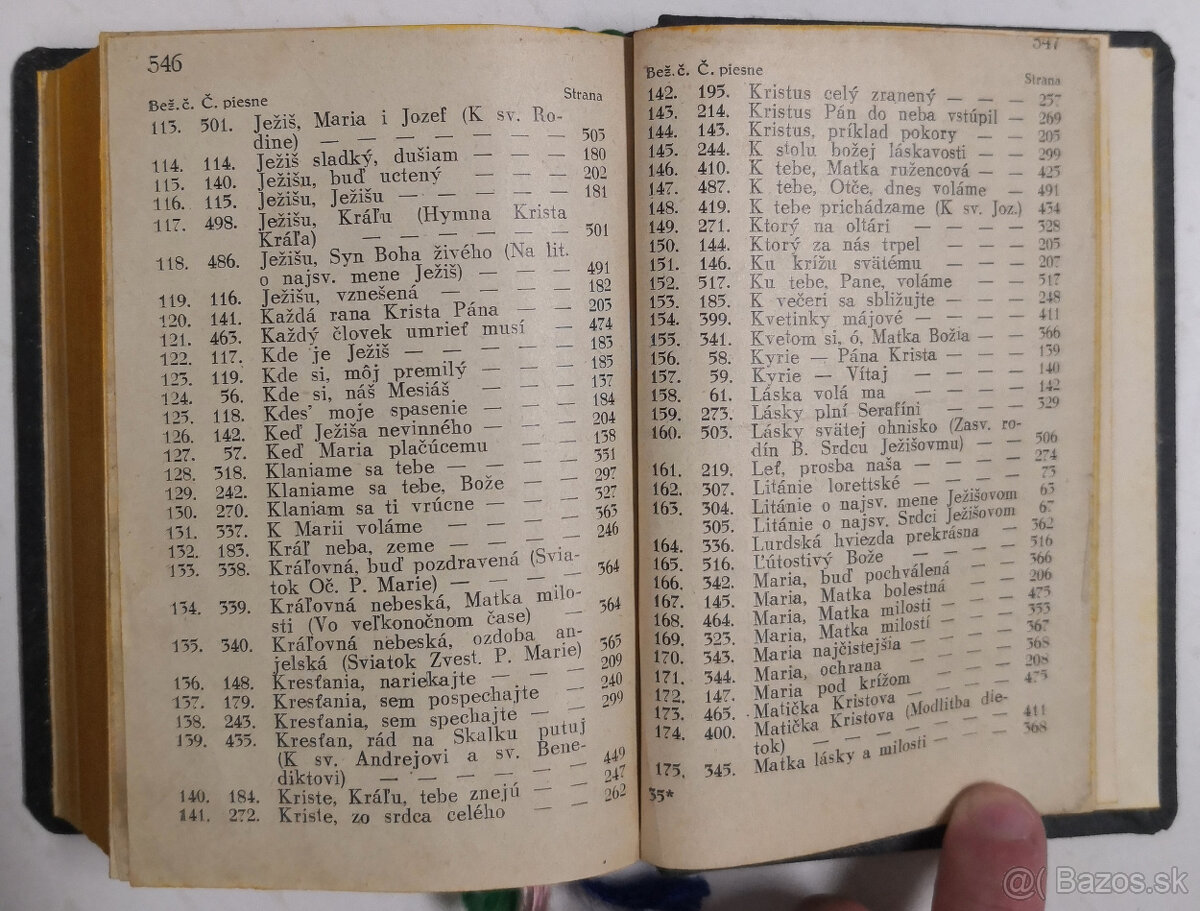 546
Bež. č. Č. piesne Strana
113. 501. Ježiš, Maria i Jozef (K sv. Ro-
dine) — — — — — — — 503
114. 114. Ježiš sladký, dušiam — — — 180
115. 140. Ježišu, buď uctený — — — — 202
116. 115. Ježišu, Ježišu — — — — — 181
117. 498. Ježišu, Kráľu (Hymna Krista
Kráľa) — — — — — — — 501
118. 486. Ježišu, Syn Boha živého (Na lit.
o najsv. mene Ježiš) — — — 491
119. 116. Ježišu, vznešená — — — — 182
120. 141. Každá rana Krista Pána — — 203
121. 463. Každý človek umrieť musí — 474
122. 117. Kde je Ježiš — — — — — 183
123. 119. Kde si, môj premilý — — — 185
124. 56. Kde si, náš Mesiáš — — — — 137
125. 118. Kdes' moje spasenie — — — 184
126. 142. Keď Ježiša nevinného — — — 204
127. 57. Keď Maria plačúcemu — — — 138
128. 318. Klaniame sa tebe — — — — 351
129. 242. Klaniame sa tebe, Bože — — 297
130. 270. Klaniam sa ti vrúcne — — — 327
131. 337. K Marii voláme — — — — 363
132. 183. Kráľ neba, zeme — — — — 246
133. 338. Kráľovná, buď pozdravená (Svia-
tok Oč. P. Marie) — — — — 364
134. 339. Kráľovná nebeská, Matka milo-
sti (Vo veľkonočnom čase) — 364
135. 340. Kráľovná nebeská, ozdoba an-
jelská (Sviatok Zvest. P. Marie) 365
136. 148. Kresťania, nariekajte — — — 209
137. 179. Kresťania, sem pospechajte — 240
138. 243. Kresťania, sem spechajte — — 299
139. 435. Kresťan, rád na Skalku putuj
(K sv. Andrejovi a sv. Bene-
diktovi) — — — — — — — 449
140. 184. Kriste, Kráľu, tebe znejú — — 247
141. 272. Kriste, zo srdca celého — — 262
547
Bež. č. Č. piesne Strana
142. 195. Kristus celý zranený — — — 257
143. 214. Kristus Pán do neba vstúpil — 269
144. 143. Kristus, príklad pokory — — 205
145. 244. K stolu božej láskavosti — — 299
146. 410. K tebe, Matka ružencová — — 425
147. 487. K tebe, Otče, dnes voláme — 491
148. 419. K tebe prichádzame (K sv. Joz.) 434
149. 271. Ktorý na oltári — — — — 328
150. 144. Ktorý za nás trpel — — — 205
151. 146. Ku krížu svätému — — — — 207
152. 517. Ku tebe, Pane, voláme — — 517
153. 185. K večeri sa sbližujte — — — 248
154. 399. Kvetinky májové — — — — 411
155. 341. Kvetom si, ó, Matka Božia — — 366
156. 58. Kyrie — Pána Krista — — — 139
157. 59. Kyrie — Vítaj — — — — 140
158. 61. Láska volá ma — — — — 142
159. 273. Lásky plní Serafíni — — — — 329
160. 503. Lásky svätej ohnisko (Zasv. ro-
dín B. Srdcu Ježišovmu) — — 506
161. 219. Leť, prosba naša — — — — 274
162. 307. Litánie lorettské — — — — 73
163. 304. Litánie o najsv. mene Ježišovom 63
305. Litánie o najsv. Srdci Ježišovom 67
164. 336. Lurdská hviezda prekrásna — 362
165. 516. Ľútostivý Bože — — — — 516
166. 342. Maria, buď pochválená — — 366
167. 145. Maria, Matka bolestná — — — 206
168. 464. Maria, Matka milosti — — — 475
169. 323. Maria, Matka milostí — — — 353
170. 343. Maria najčistejšia — — — — 367
171. 344. Maria, ochrana — — — — 368
172. 147. Maria pod krížom — — — — 208
173. 465. Matička Kristova — — — — 475
174. 400. Matička Kristova (Modlitba die-
tok) — — — — — — — 411
175. 345. Matka lásky a milosti — — — 368
35*
@( Bazos.sk